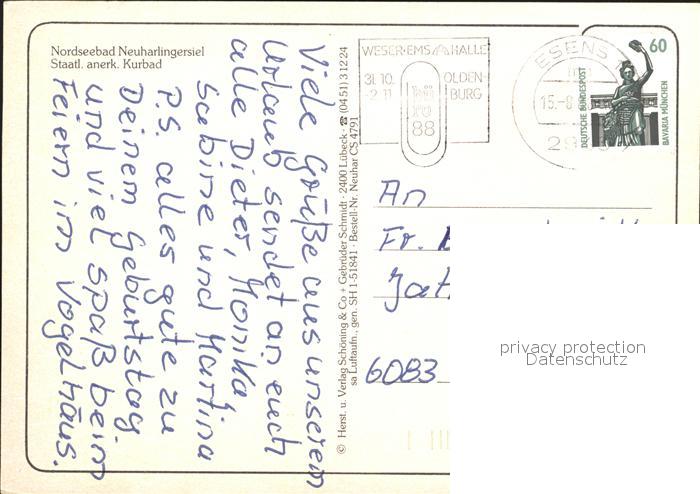 Nordseebad Neuharlingersiel
Staatl. anerk. Kurbad
Viele Grüße aus unserem
Urlaub sendet an euch
alle Dieter, Monika
Sabine und Martina
P.S. alles gute zu
Deinem Geburtstag
und viel Spaß beim
Feiern im Vogelhäus.
© Herst. u. Verlag Schöning & Co + Gebrüder Schmidt · 2400 Lübeck · ☎ (0451) 31224
sa Luftaufn., gen. SH 1-51841 · Bestell-Nr. Neuhar CS 4791
WESER-EMS HALLE
31.10.
-2.11
OLDEN-
BURG
88
ESENS
15.-8
29
60
DEUTSCHE BUNDESPOST
BAVARIA MÜNCHEN
An
Fr.
6083
privacy protection
Datenschutz